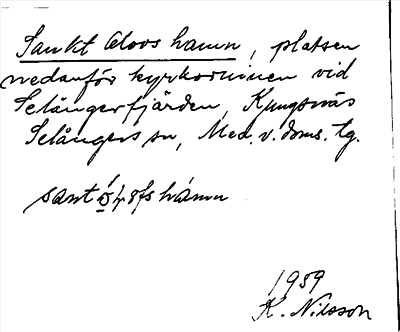 Sankt Olovs hamn, platsen
nedanför kyrkoruinen vid
Selångerfjärden, Kungsnäs
Selångers sn, Med. v. doms. tg.
1959
K. Nilsson